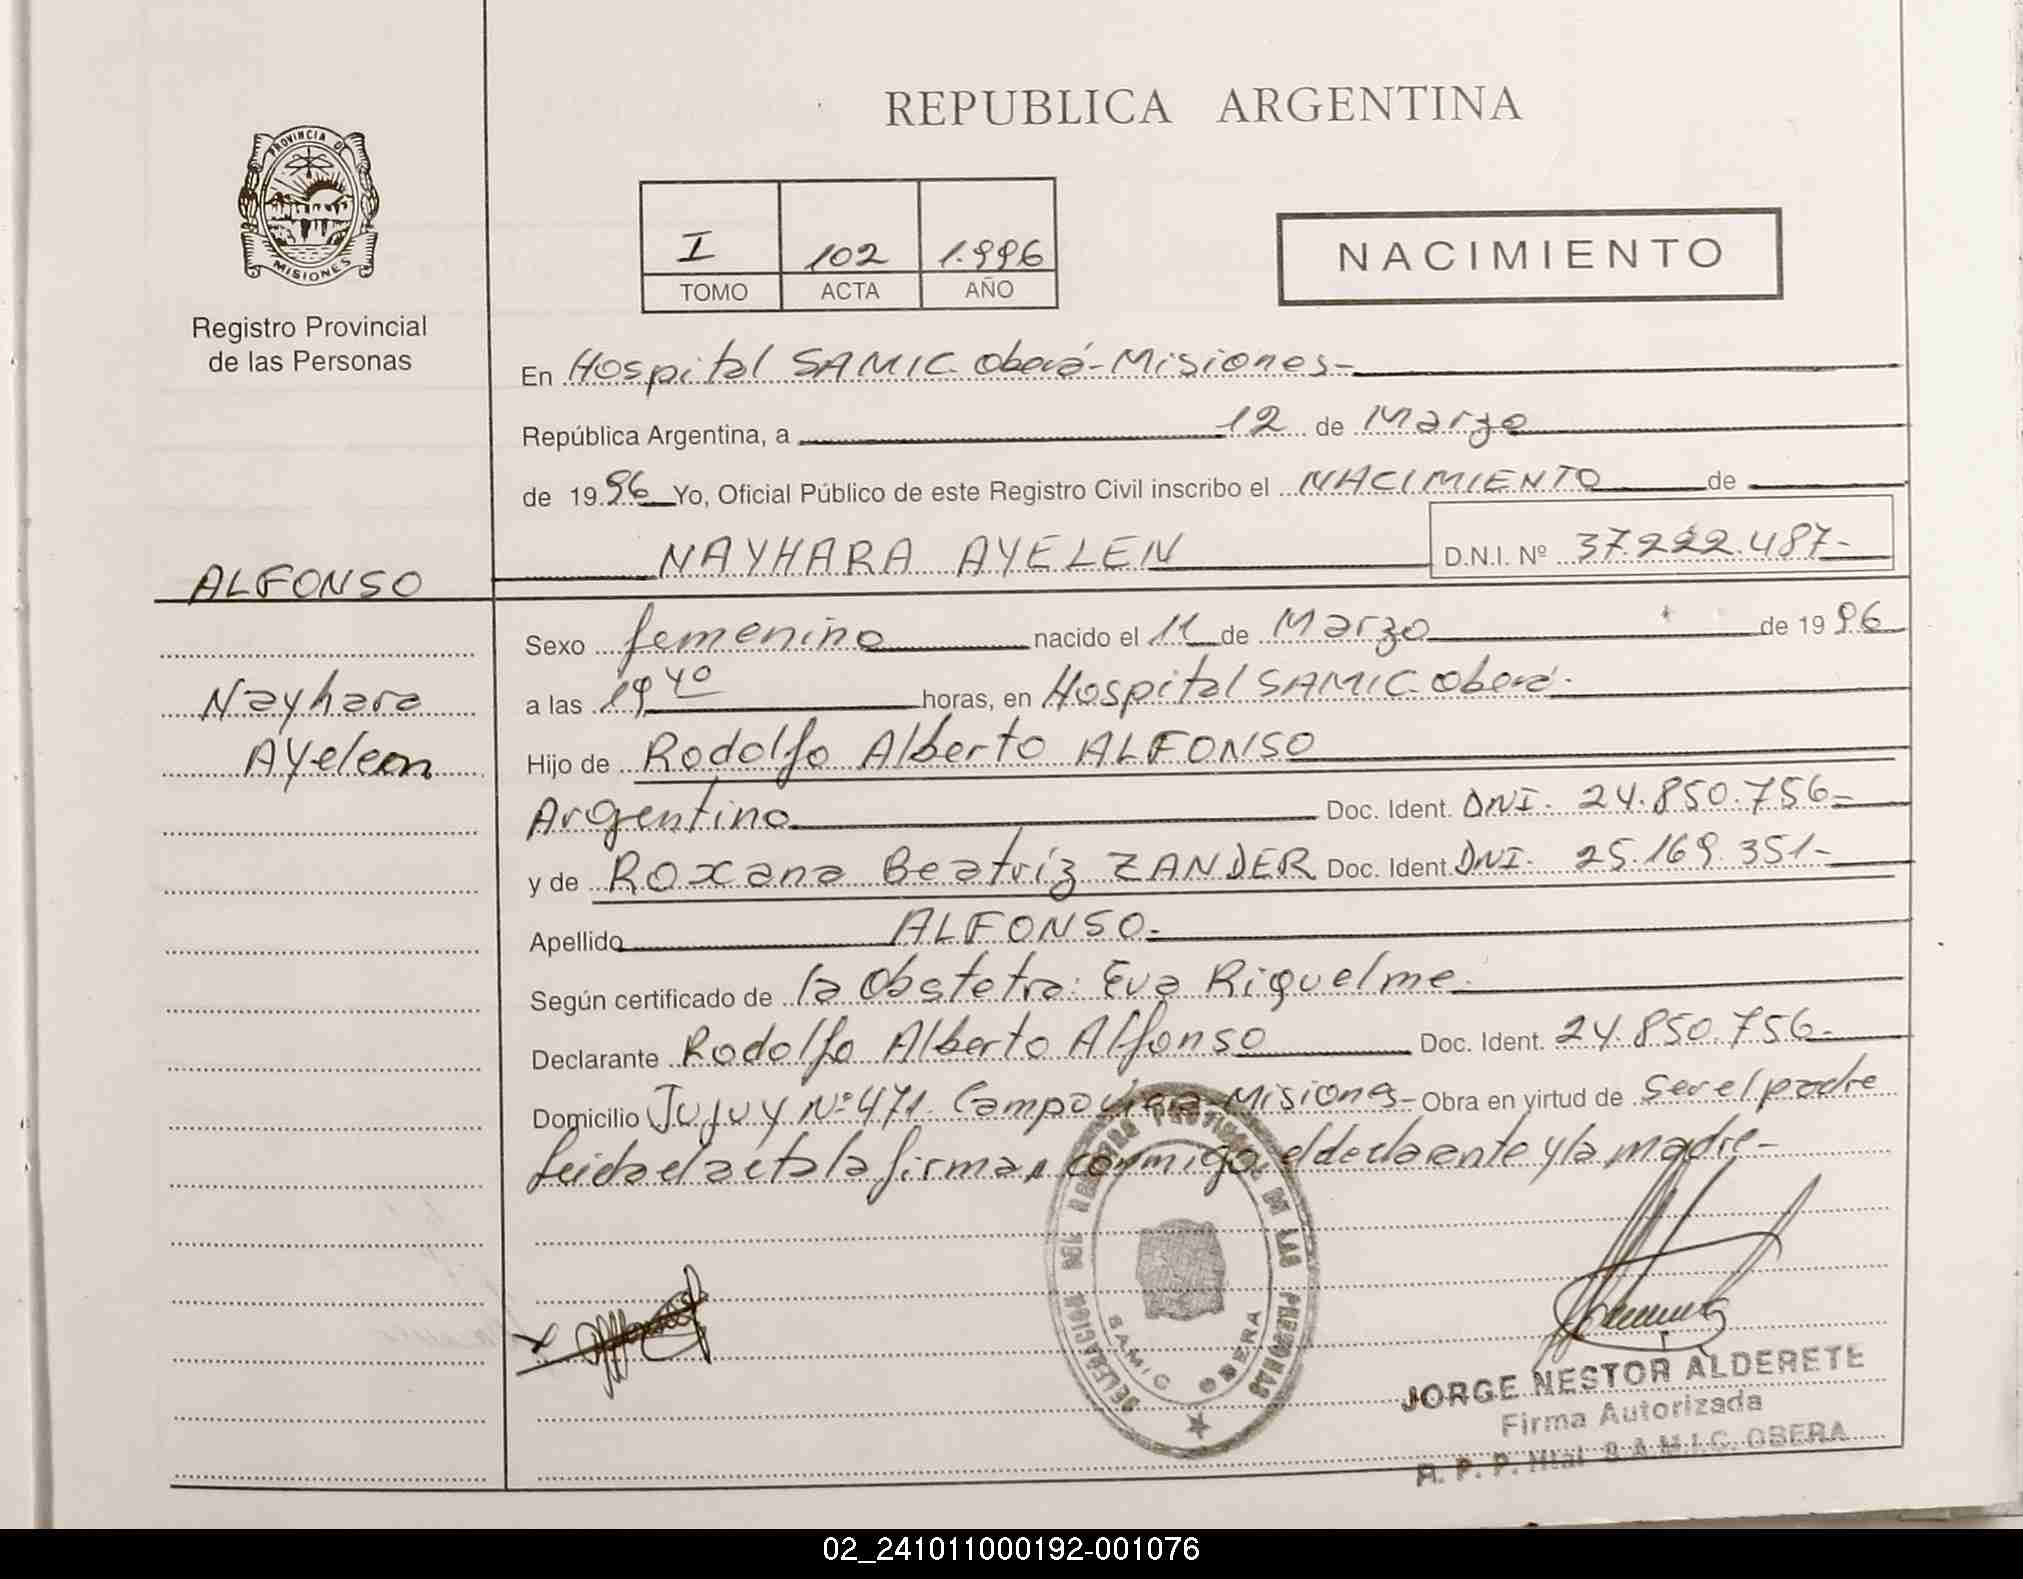 REPUBLICA ARGENTINA
PROVINCIA DE
MISIONES
Registro Provincial
de las Personas
I 102 1.996
TOMO ACTA AÑO
NACIMIENTO
En Hospital SAMIC. Oberá-Misiones-
República Argentina, a 12 de Marzo
de 1996 Yo, Oficial Público de este Registro Civil inscribo el NACIMIENTO de
NAYHARA AYELEN D.N.I. Nº 37.222.487-
ALFONSO
Nayhara
AYelen
Sexo femenino nacido el 11 de Marzo de 1996
a las 19 40 horas, en Hospital SAMIC. Oberá.
Hijo de Rodolfo Alberto ALFONSO
Argentino Doc. Ident. DNI. 24.850.756-
y de Roxana Beatríz ZANDER Doc. Ident. DNI. 25.169.351-
Apellido ALFONSO.
Según certificado de la Obstetra: Eva Riquelme.
Declarante Rodolfo Alberto Alfonso Doc. Ident. 24.850.756-
Domicilio Jujuy Nº 471. Campo Viera-Misiones- Obra en virtud de ser el padre
leida el acta la firman conmigo el declarante y la madre-
DELEGACION DEL REGISTRO PROVINCIAL DE LAS PERSONAS
SAMIC OBERA
JORGE NESTOR ALDERETE
Firma Autorizada
R. P. P. Htal S.A.M.I.C. OBERA
02_241011000192-001076